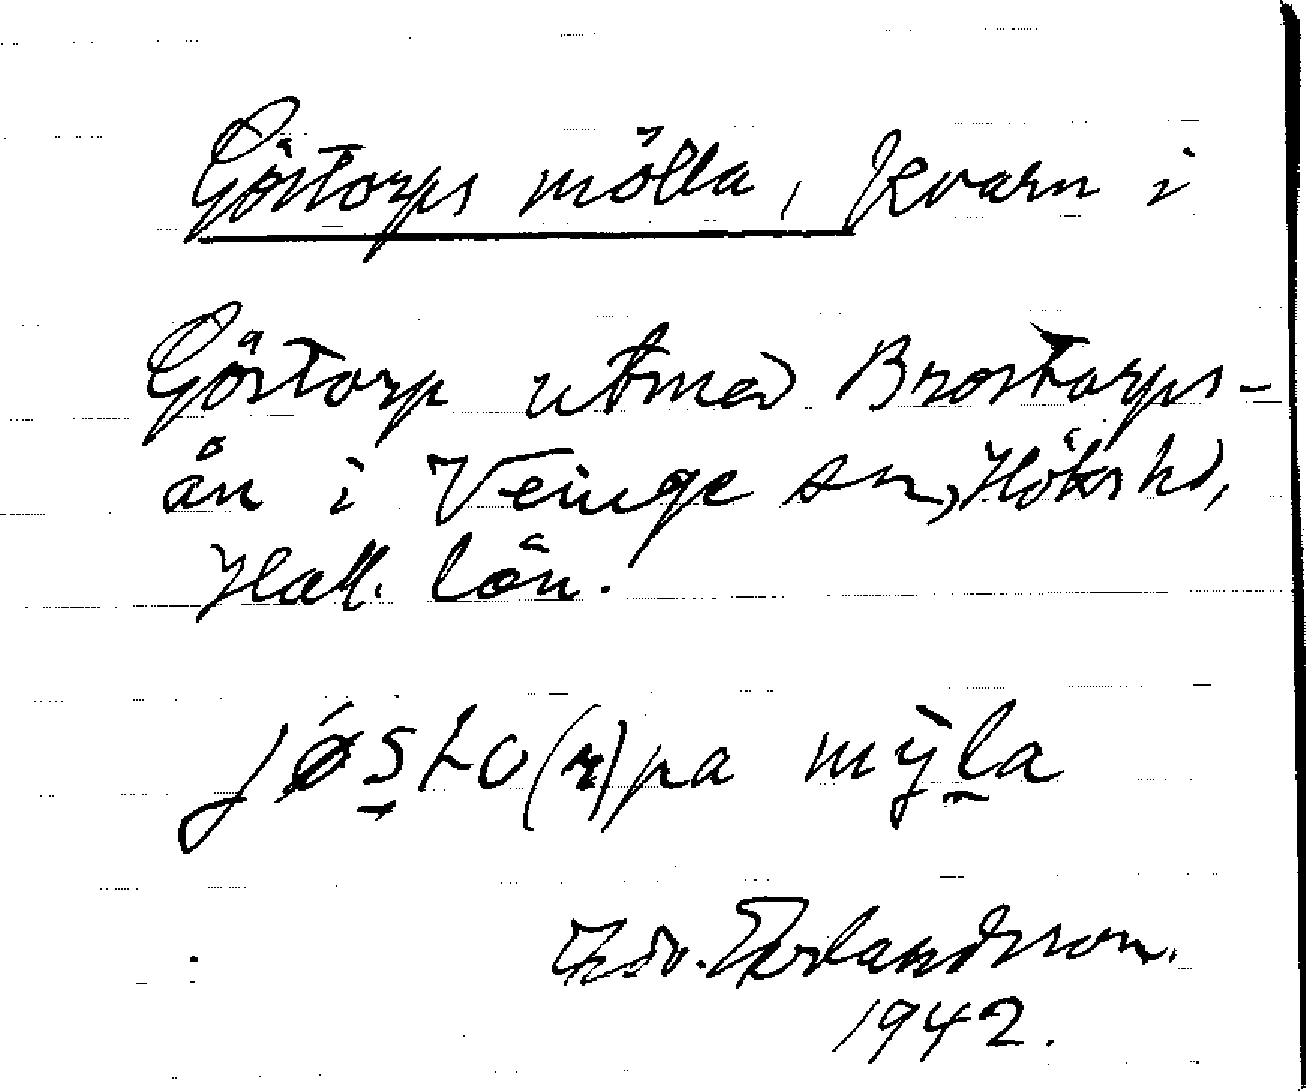 Göstorps mölla, kvarn i
Göstorp utmed Brostorps-
ån i Veinge sn, Höks hd,
Hall. län.
jǿs̱to(r)pa mỳḻa
Edv. Erlandsson.
1942.